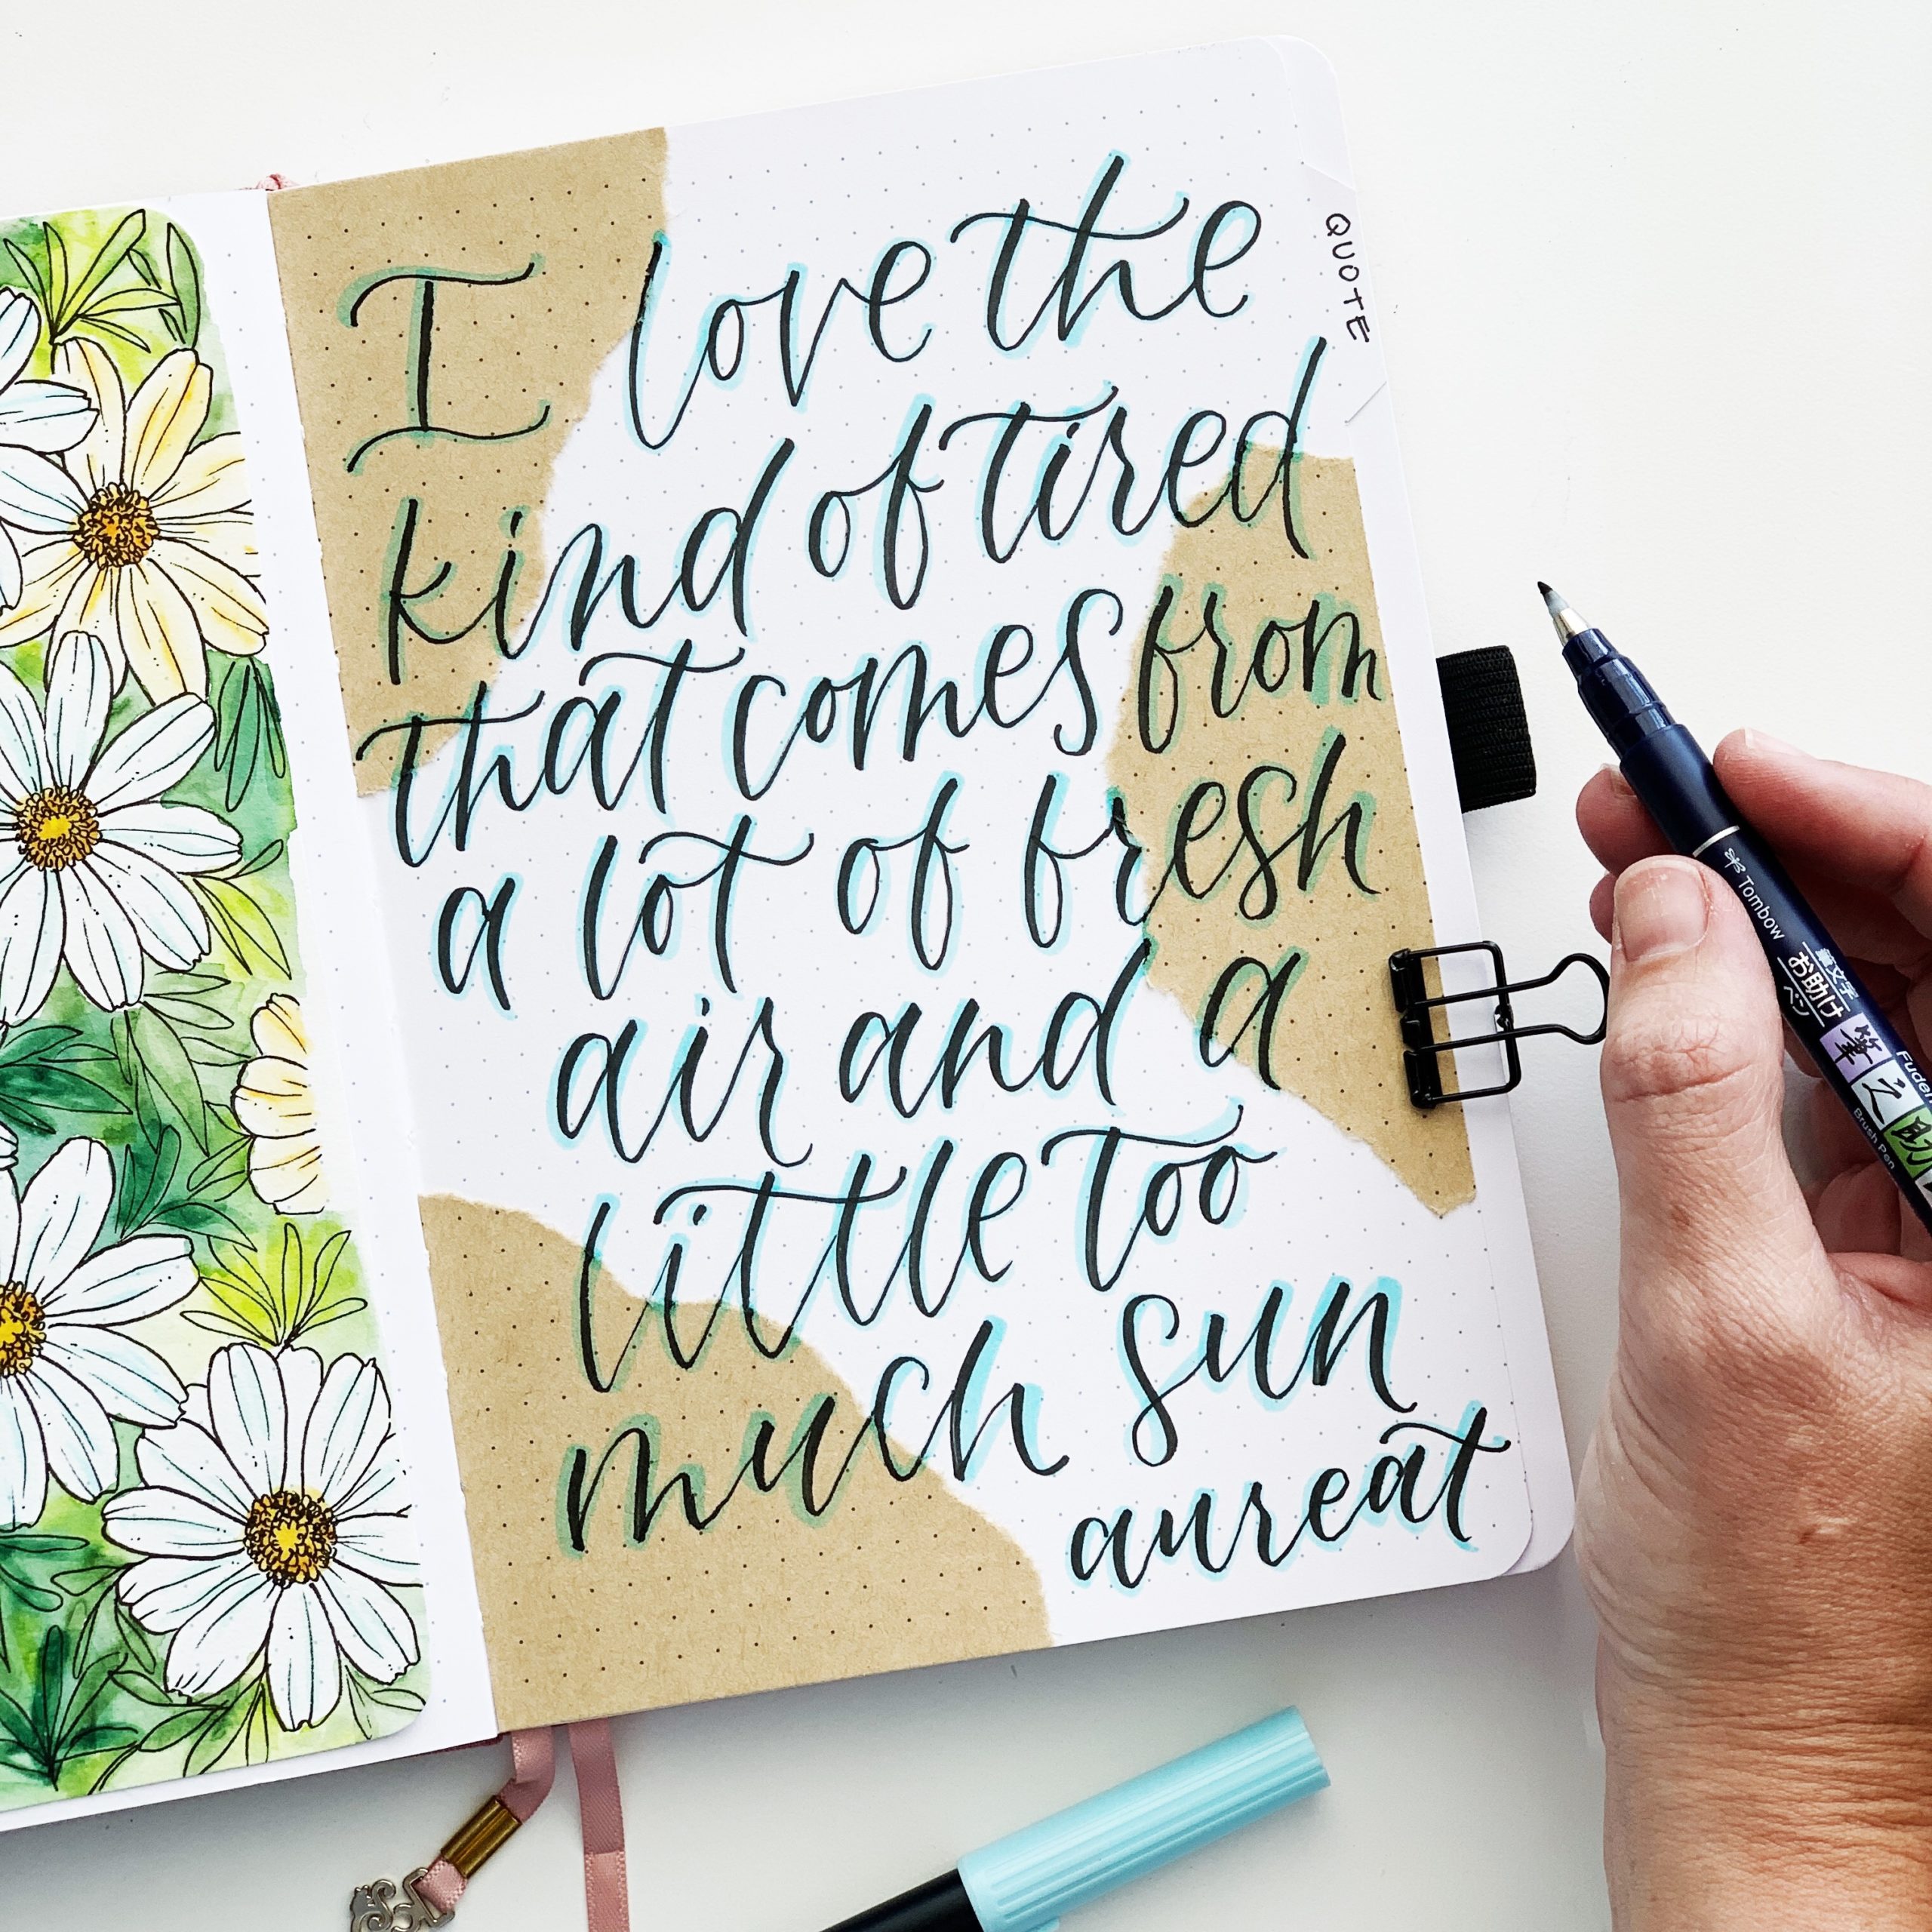 I love the
kind of tired
that comes from
a lot of fresh
air and a
little too
much sun
aureat
QUOTE
Tombow
筆文字
お助け
ペン
筆之助
Fude
Brush Pen